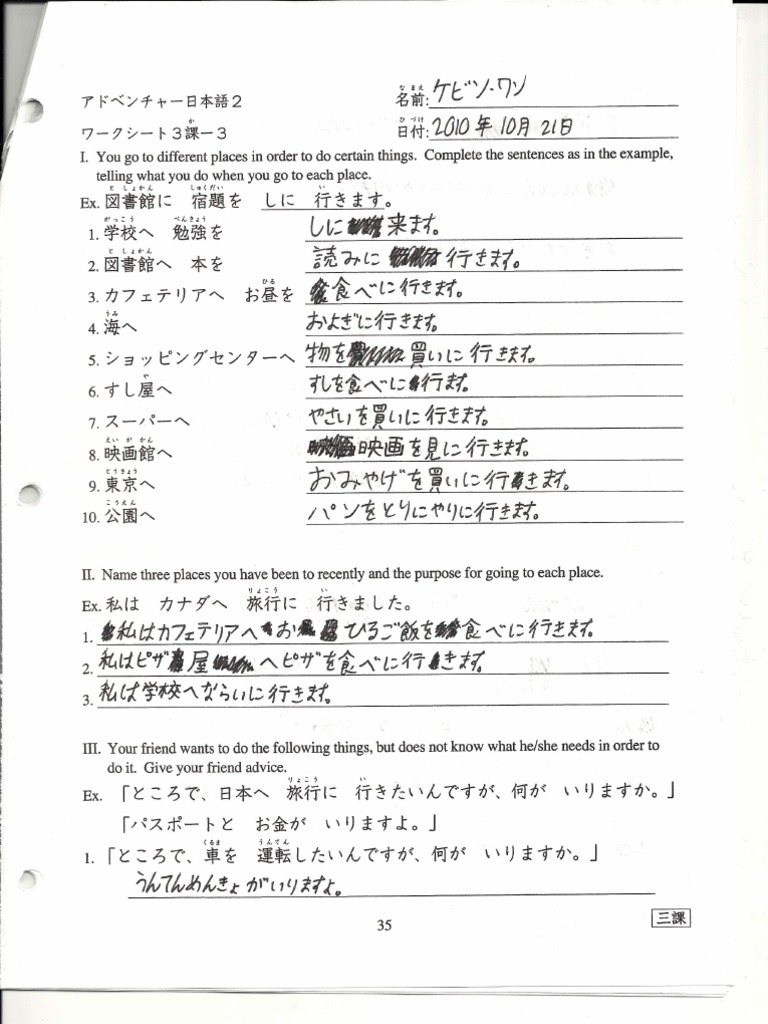 アドベンチャー日本語2
名前: ケビン・ワン
ワークシート3課ー3
日付: 2010年10月21日
I. You go to different places in order to do certain things. Complete the sentences as in the example,
telling what you do when you go to each place.
Ex. 図書館に 宿題を しに 行きます。
1. 学校へ 勉強を しに来ます。
2. 図書館へ 本を 読みに行きます。
3. カフェテリアへ お昼を 食べに行きます。
4. 海へ およぎに行きます。
5. ショッピングセンターへ 物を買いに行きます。
6. すし屋へ すしを食べに行ます。
7. スーパーへ やさいを買いに行きます。
8. 映画館へ 映画を見に行きます。
9. 東京へ おみやげを買いに行きます。
10. 公園へ パンをとりにやりに行きます。
II. Name three places you have been to recently and the purpose for going to each place.
Ex. 私は カナダへ 旅行に 行きました。
1. 私はカフェテリアへおひるご飯を食べに行きます。
2. 私はピザ屋へピザを食べに行きます。
3. 私は学校へならいに行きます。
III. Your friend wants to do the following things, but does not know what he/she needs in order to
do it. Give your friend advice.
Ex. 「ところで、日本へ 旅行に 行きたいんですが、何が いりますか。」
「パスポートと お金が いりますよ。」
1. 「ところで、車を 運転したいんですが、何が いりますか。」
うんてんめんきょがいりますよ。
35
三課